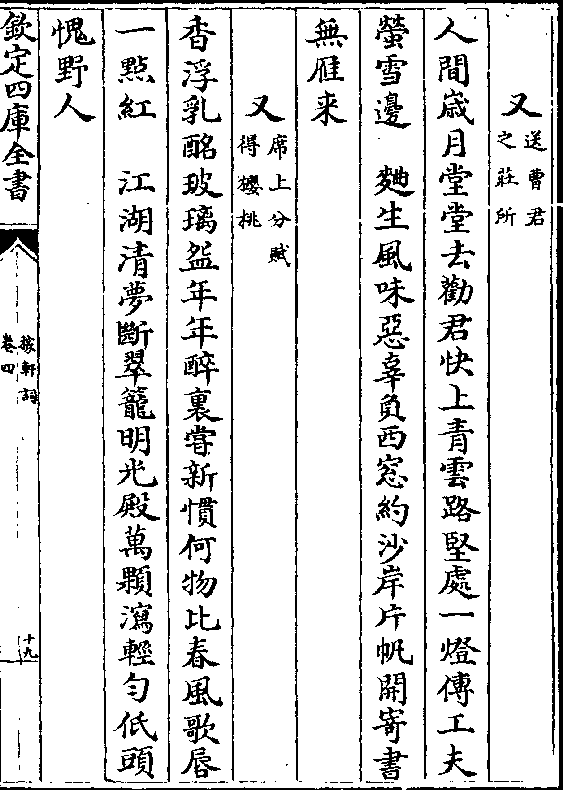 又送曹君之莊所
人間歲月堂堂去勸君快上青雲路堅處一燈傳工夫
螢雪邊　麴生風味惡辜負西窓約沙岸片帆開寄書
無雁来
又席上分賦得櫻桃
香浮乳酪玻璃盌年年醉裏甞新慣何物比春風歌唇
一㸃紅　江湖清夢斷翠籠明光殿萬顆瀉輕勻低頭
愧野人
欽定四庫全書
稼軒詞
卷四
十九